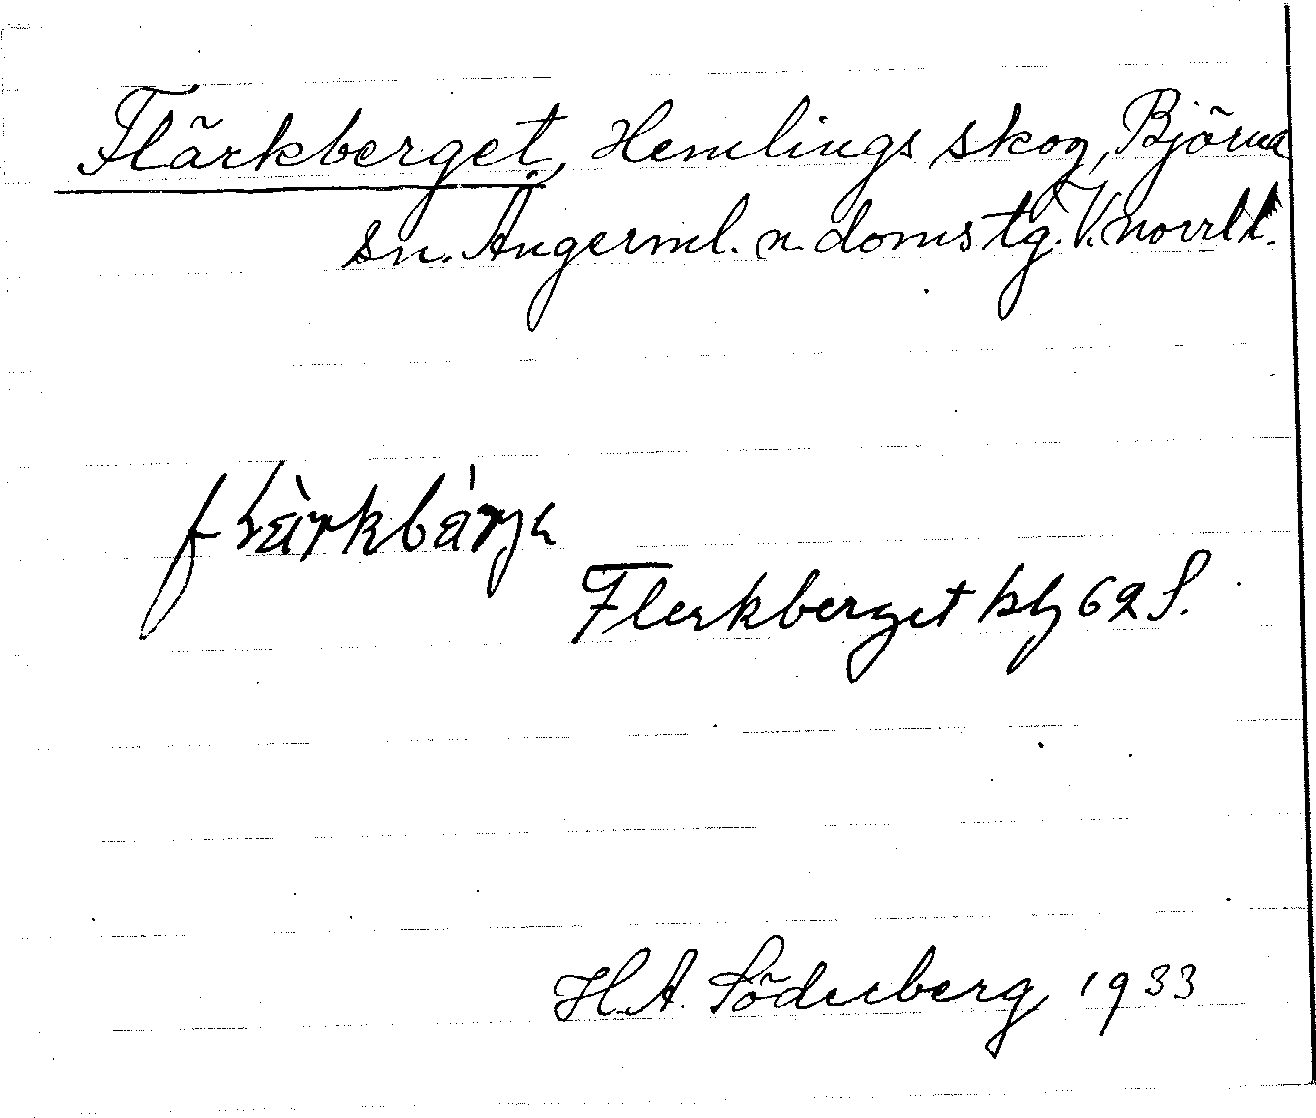 Flärkberget, Hemlings skog, Björna
sn. Ångerml. n. domstg. V. norrl l.
Flerkberget kbl 62 S.
H.A. Söderberg 1933